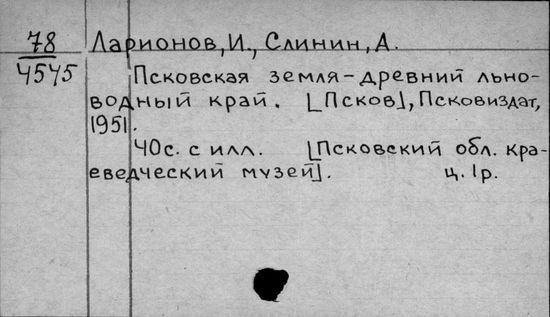 78 Ларионов, И., Слинин, А.
4545
Псковская земля - древний льно-
водный край. [Псков], Псковиздат,
1951.
40с. с илл. [Псковский обл. кра-
еведческий музей]. ц. 1р.